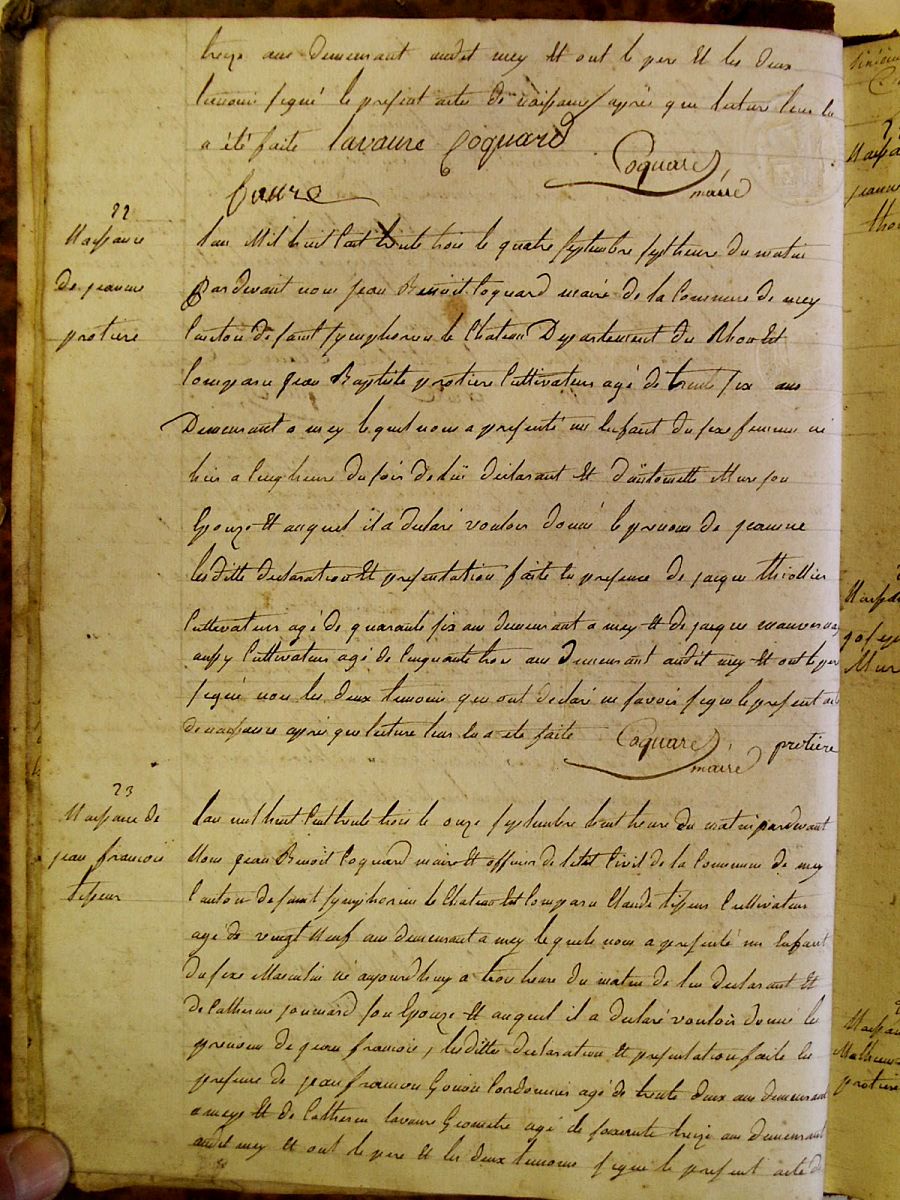 treize ans demeurant audit mey Et ont le pere Et les deux
temoins signé le present acte de naissance après que lecture leur en
a été faite Lavaure Coquard
Coquard
maire
faure
22
Naissance
de jeanne
protiere
Lan Mil huit Cent trente trois le quatre septembre sept heure du matin
Pardevant nous jean Benoit Coquard maire de la Commune de mey
Canton de saint symphorien le Chateau Departement du Rhone Est
Comparu jean Baptiste protiere Cultivateur agé de trente six ans
Demeurant a mey lequel nous a presenté un Enfant du sexe feminin né
hier a Cinq heure du soir de lui declarant Et d'antoinette Mure son
Epouze Et auquel il a declaré vouloir donné le prenom de jeanne
lesditte declaration Et presentation faite En presence de jacque thiollier
Cultivateur agé de quarante six ans demeurant a mey Et de jacque
aussy Cultivateur agé de Cinquante trois ans Demeurant audit mey Et ont le pere
signé non les deux temoins qui ont declaré ne savoir signe le present acte
de naissance après que lecture leur En a eté faite Coquard protiere
maire
23
Naissance de
jean francois
tisseur
Lan mil huit Cent trente trois le onze septembre huit heure du matin pardevant
Nous jean Benoit Coquard maire Et officier de letat Civil de la Commune de mey
Canton de saint symphorien le Chateau Est Comparu Claude tisseur Cultivateur
agé de vingt Neuf ans demeurant a mey lequele nous a presenté un Enfant
du sexe Masculin né aujourdhuy a trois heure du matin de lui declarant Et
de Catherine son Epouze Et auquel il a declaré vouloir donné le
prenom de jean francois, lesditte declaration Et presentation faite En
presence de jean francois Cordonnier agé de trente deux ans demeurant
a meys Et de Catherin lavaure Geometre agé de soixente treize ans demeurant
audit mey Et ont le pere Et les deux temoins signe le present acte de
Naissa
jeanne
Naissa
josep
Mur
Naissan
Mathieu
protiere